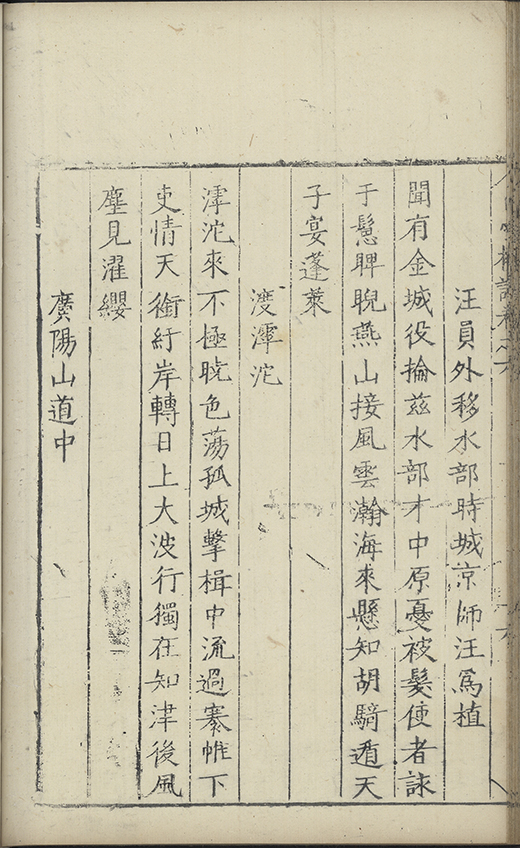 汪員外移水部時城京師汪爲植
聞有金城役掄茲水部才中原憂被髮使者詠
于鬆睥睨燕山接風雲瀚海來懸知胡騎遁天
子宴蓬萊
渡滹沱
滹沱來不極晩色蕩孤城擊楫中流過褰帷下
吏情天銜紆岸轉日上大波行獨在知津後風
塵見濯纓
廣陽山道中